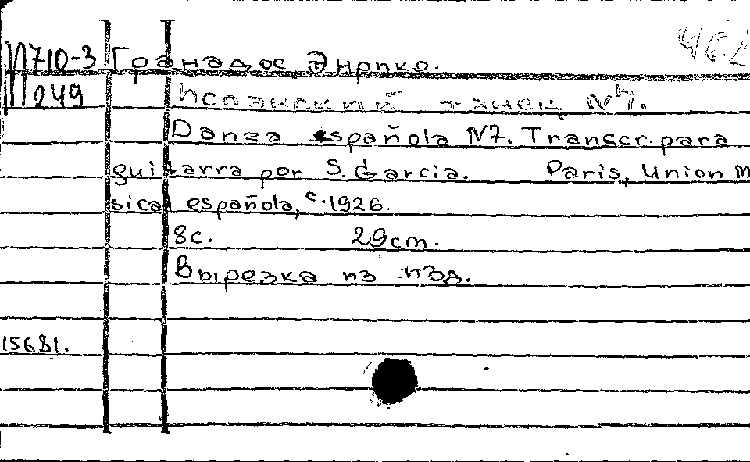 П710-3 Гранадос, Энрико. 462
П249 Испанский танец №7.
Danza española №7. Transcr. para
guitarra por S. Garcia. Paris, Union M
sical española, c. 1926.
8с. 29cm.
Вырезка из изд.
15681.